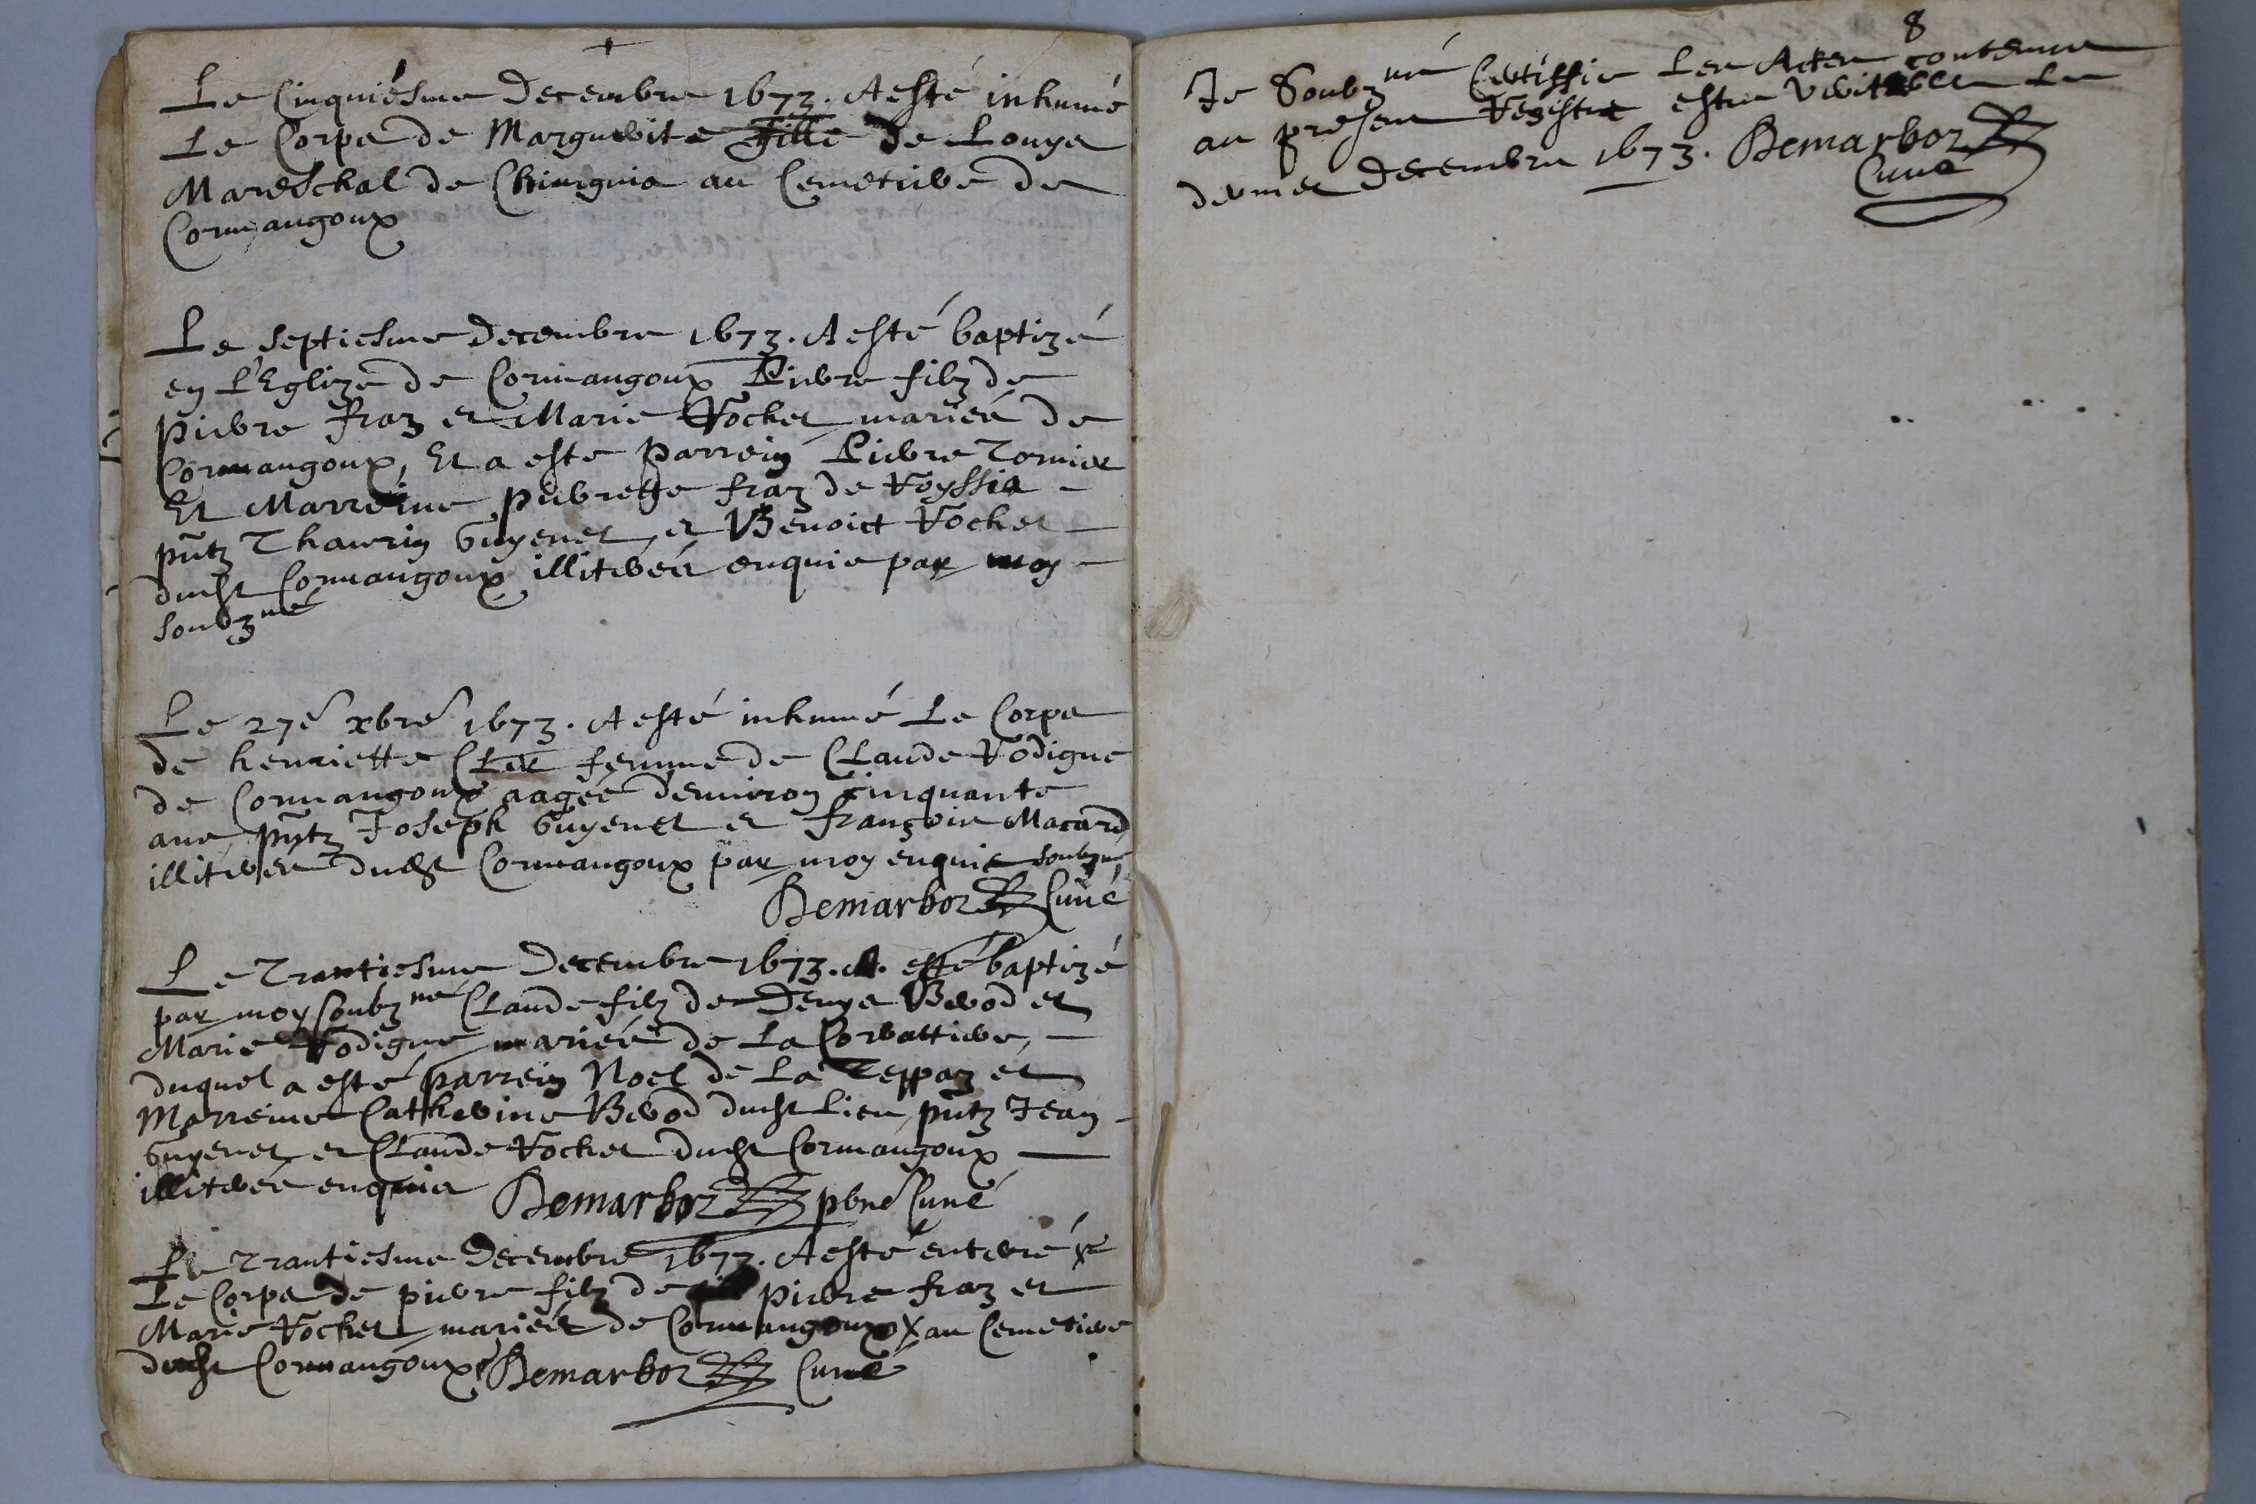 Le Cinquiésme Decembre 1673. A esté inhumé
Le Corps de Marguerite fille de Louys
Mareschal de Chiurguis au Cemetiere de
Cormangoux
Le septiesme decembre 1673. A esté baptizé
en L'Eglize de Cormangoux Pierre filz de
pierre fraz et Marie Rochet mariéé de
Cormangoux, Et a este parrein Pierre Tornier
Et Marreine pierrette fraz de Royssia
pñtz Thaurin Guyenet, et Benoict Rochet
dudt Cormangoux illiteréé enquis par moy
soubzné
Le 27e xbre 1673. A esté inhumé Le Corps
de henriette Cler femme de Claude Rodigue
de Cormangoux aagéé denuiron cinquante
ans, pñtz Joseph Guyenet et françois Macard
illiteres dudt Cormangoux par moy enquis soubzné
Demarboz Curé
Le Trantiesme Decembre 1673. A. esté baptizé
par moy soubzné Claude filz de Denys Berod et
Marie Rodigue mariéé de La Corbattiere,
duquel a esté parrein Noel de La Teppaz et
Marreine Catherine Berod dudt lieu, pñtz Jean
Guyenet et Claude Rochet dudt Cormangoux
illiteréé enquis Demarboz pbre Curé
Le Trantiesme Decembre 1673. A esté enterré
Le Corps de pierre filz de pierre fraz et
Marie Rochet mariéé de Cormangoux X au Cemetiere
dudt Cormangoux Demarboz Curé
8
Je Soubzné Certiffie Les Actes contenus
au present Registre estre veritables Le
dernier decembre 1673. Demarboz
Curé